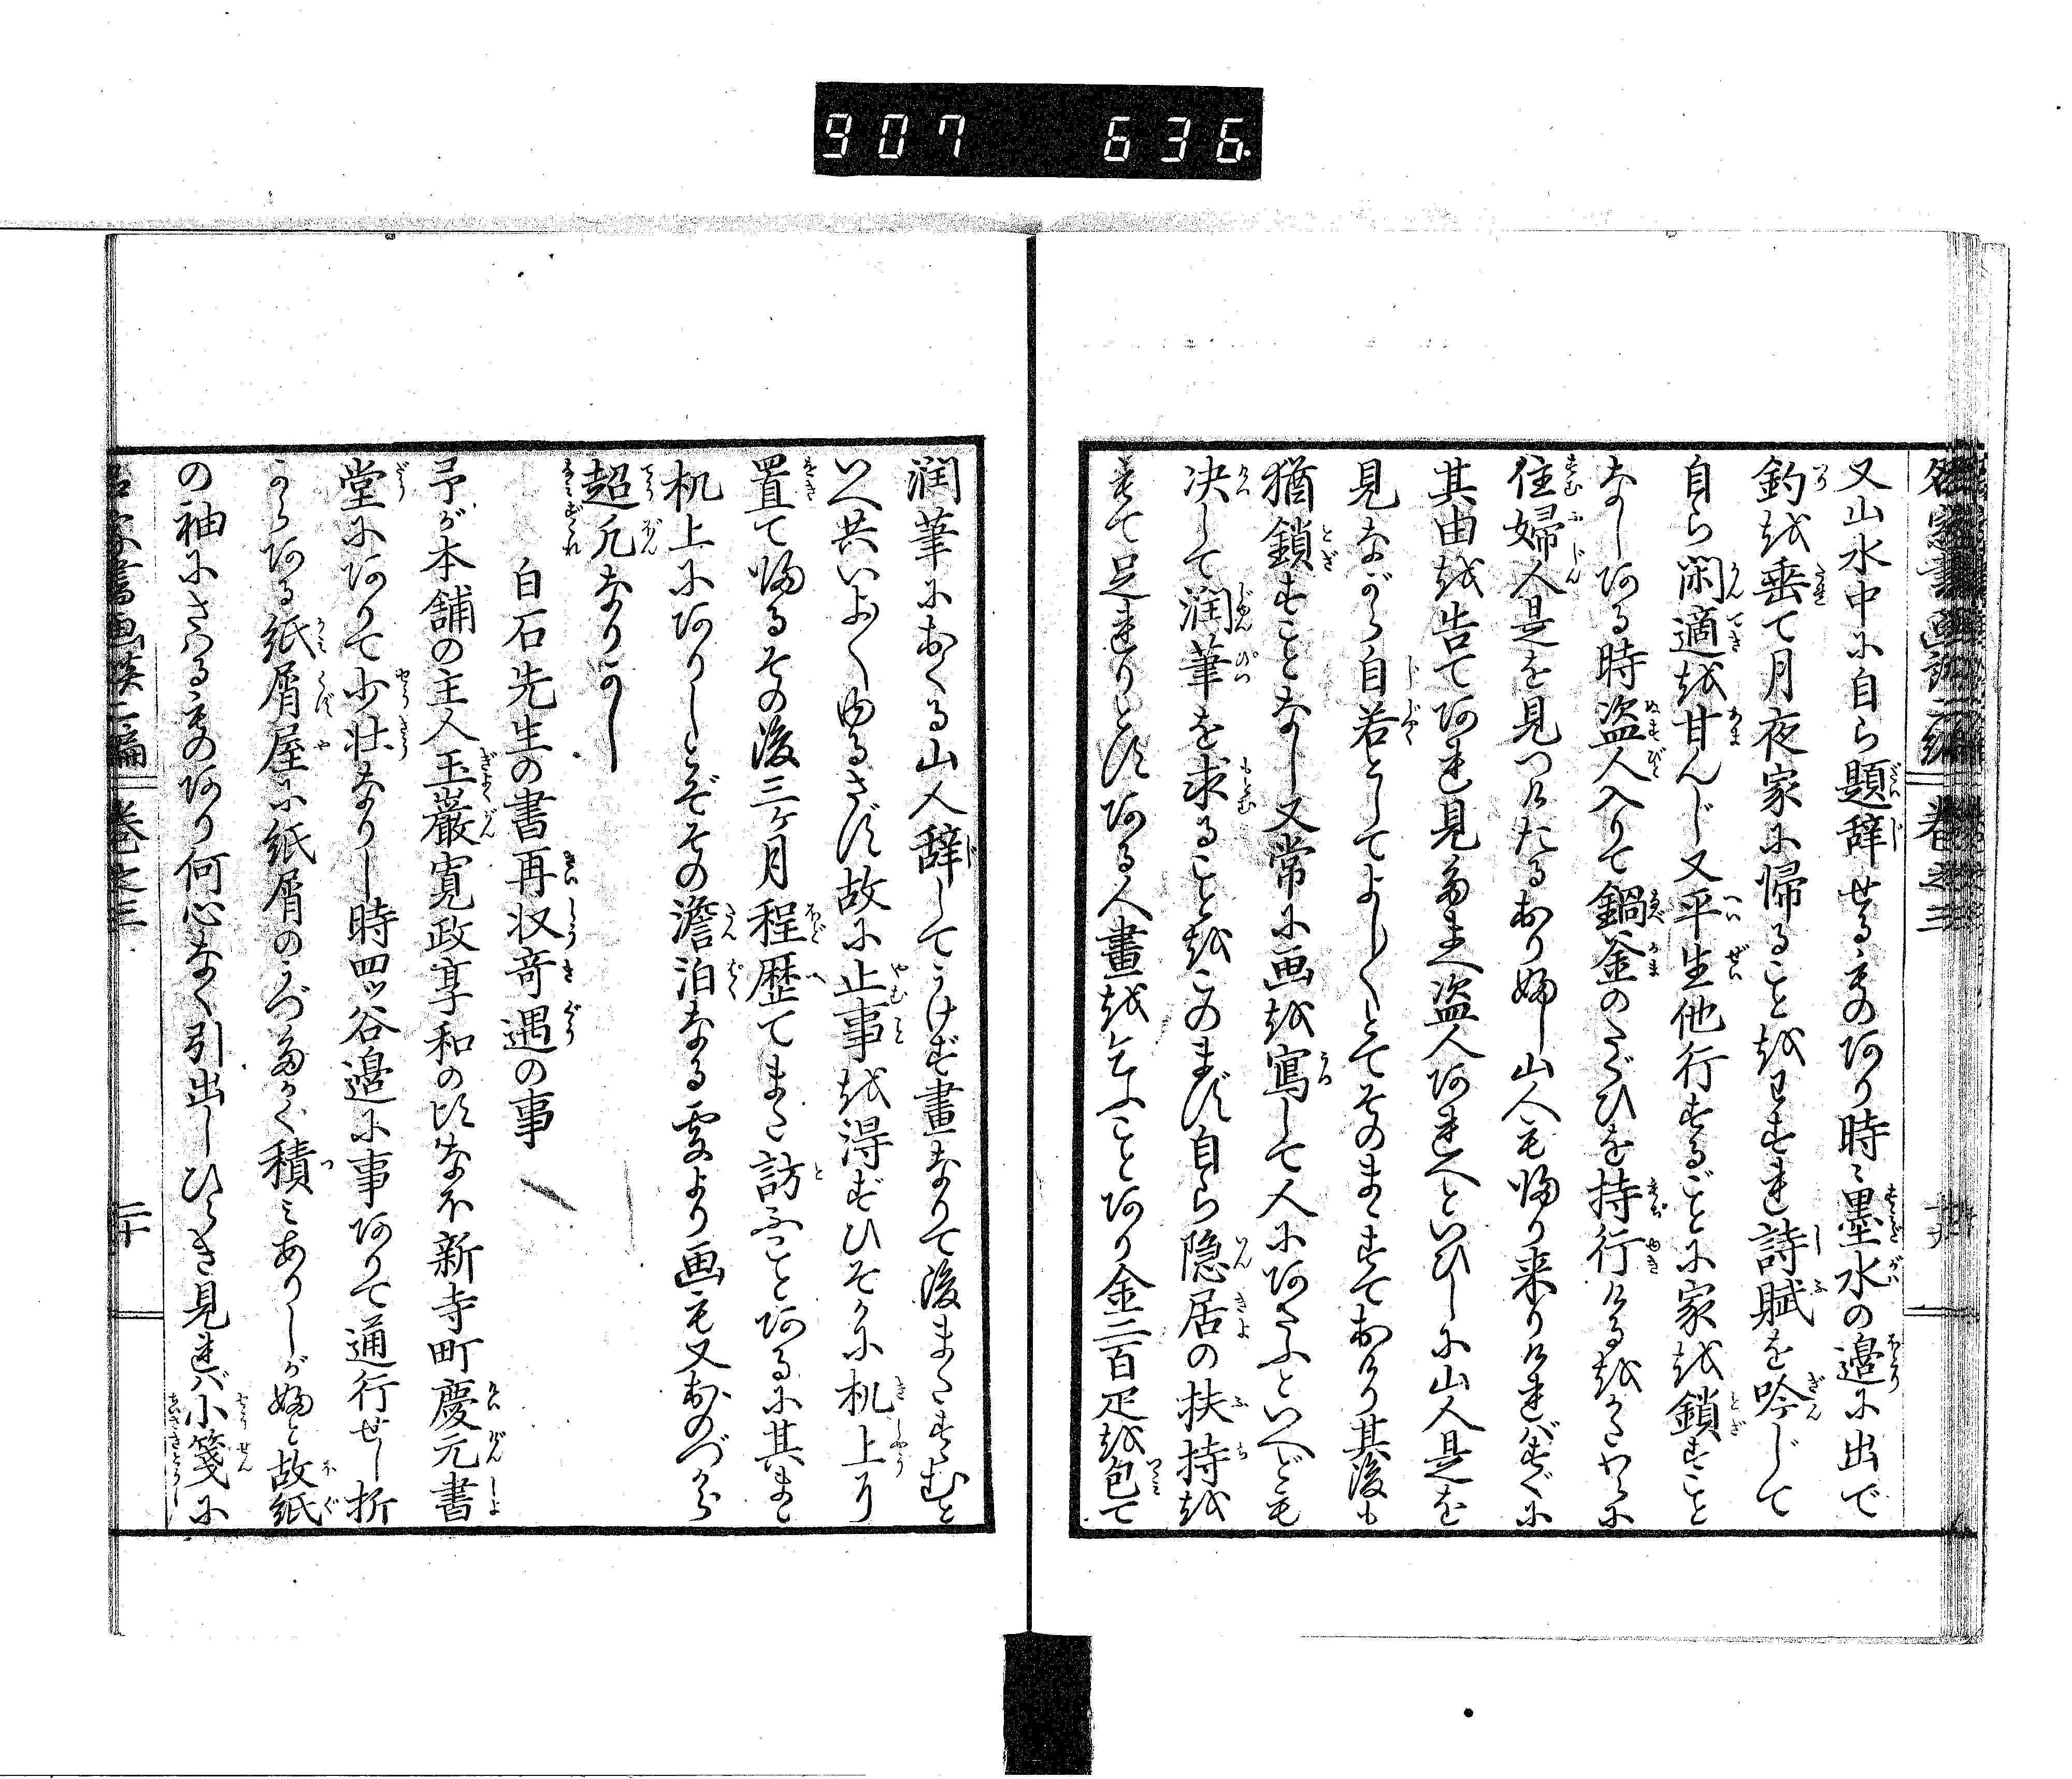 907 636
名家書画談二編 巻之三
又山水中に自ら題辞せるもの有り時〻墨水の邉に出で
釣を垂て月夜家に帰ることをわすれ詩賦を吟じて
自ら閑適を甘んじ又平生他行するごとに家を鎖すこと
なし有る時盗人入りて鍋釜のたぐひを持行けるをかたわらに
住婦人是を見つけたるあり婦し山人も帰り来りければすぐに
其由を告て有れ見たまへ盗人有れへといひしに山人是を
見ながら自若としてよし〳〵とてそのまゝすておけり其後も
猶鎖すことなし又常に画を寫して人にあたふといへども
决して潤筆を求ることをこのまず自ら隠居の扶持を
以て足れりとす有る人畫を乞ふこと有り金二百疋を包て
潤筆におくる山人辞してうけず畫なりて後またすゝむと
いへ共いよ〳〵ゆるさず故に止事を得ずひそかに机上り
置て帰るその後三ヶ月程歴てまた訪ふこと有るに其まゝ
机上に有りしとぞその澹泊なる更より画も又おのづから
超凡なりかし
白石先生の書再収竒遇の事
予が本舗の主人玉巌寛政享和の頃なホ新寺町慶元書
堂に有りて少壮なりし時四ッ谷邉に事有りて通行せし折
から有る紙屑屋に紙屑のうづたかく積みありしが婦と故紙
の袖にさはるもの有り何心なく引出しひらき見れバ小箋に
名家書画談二編 巻之三 二十